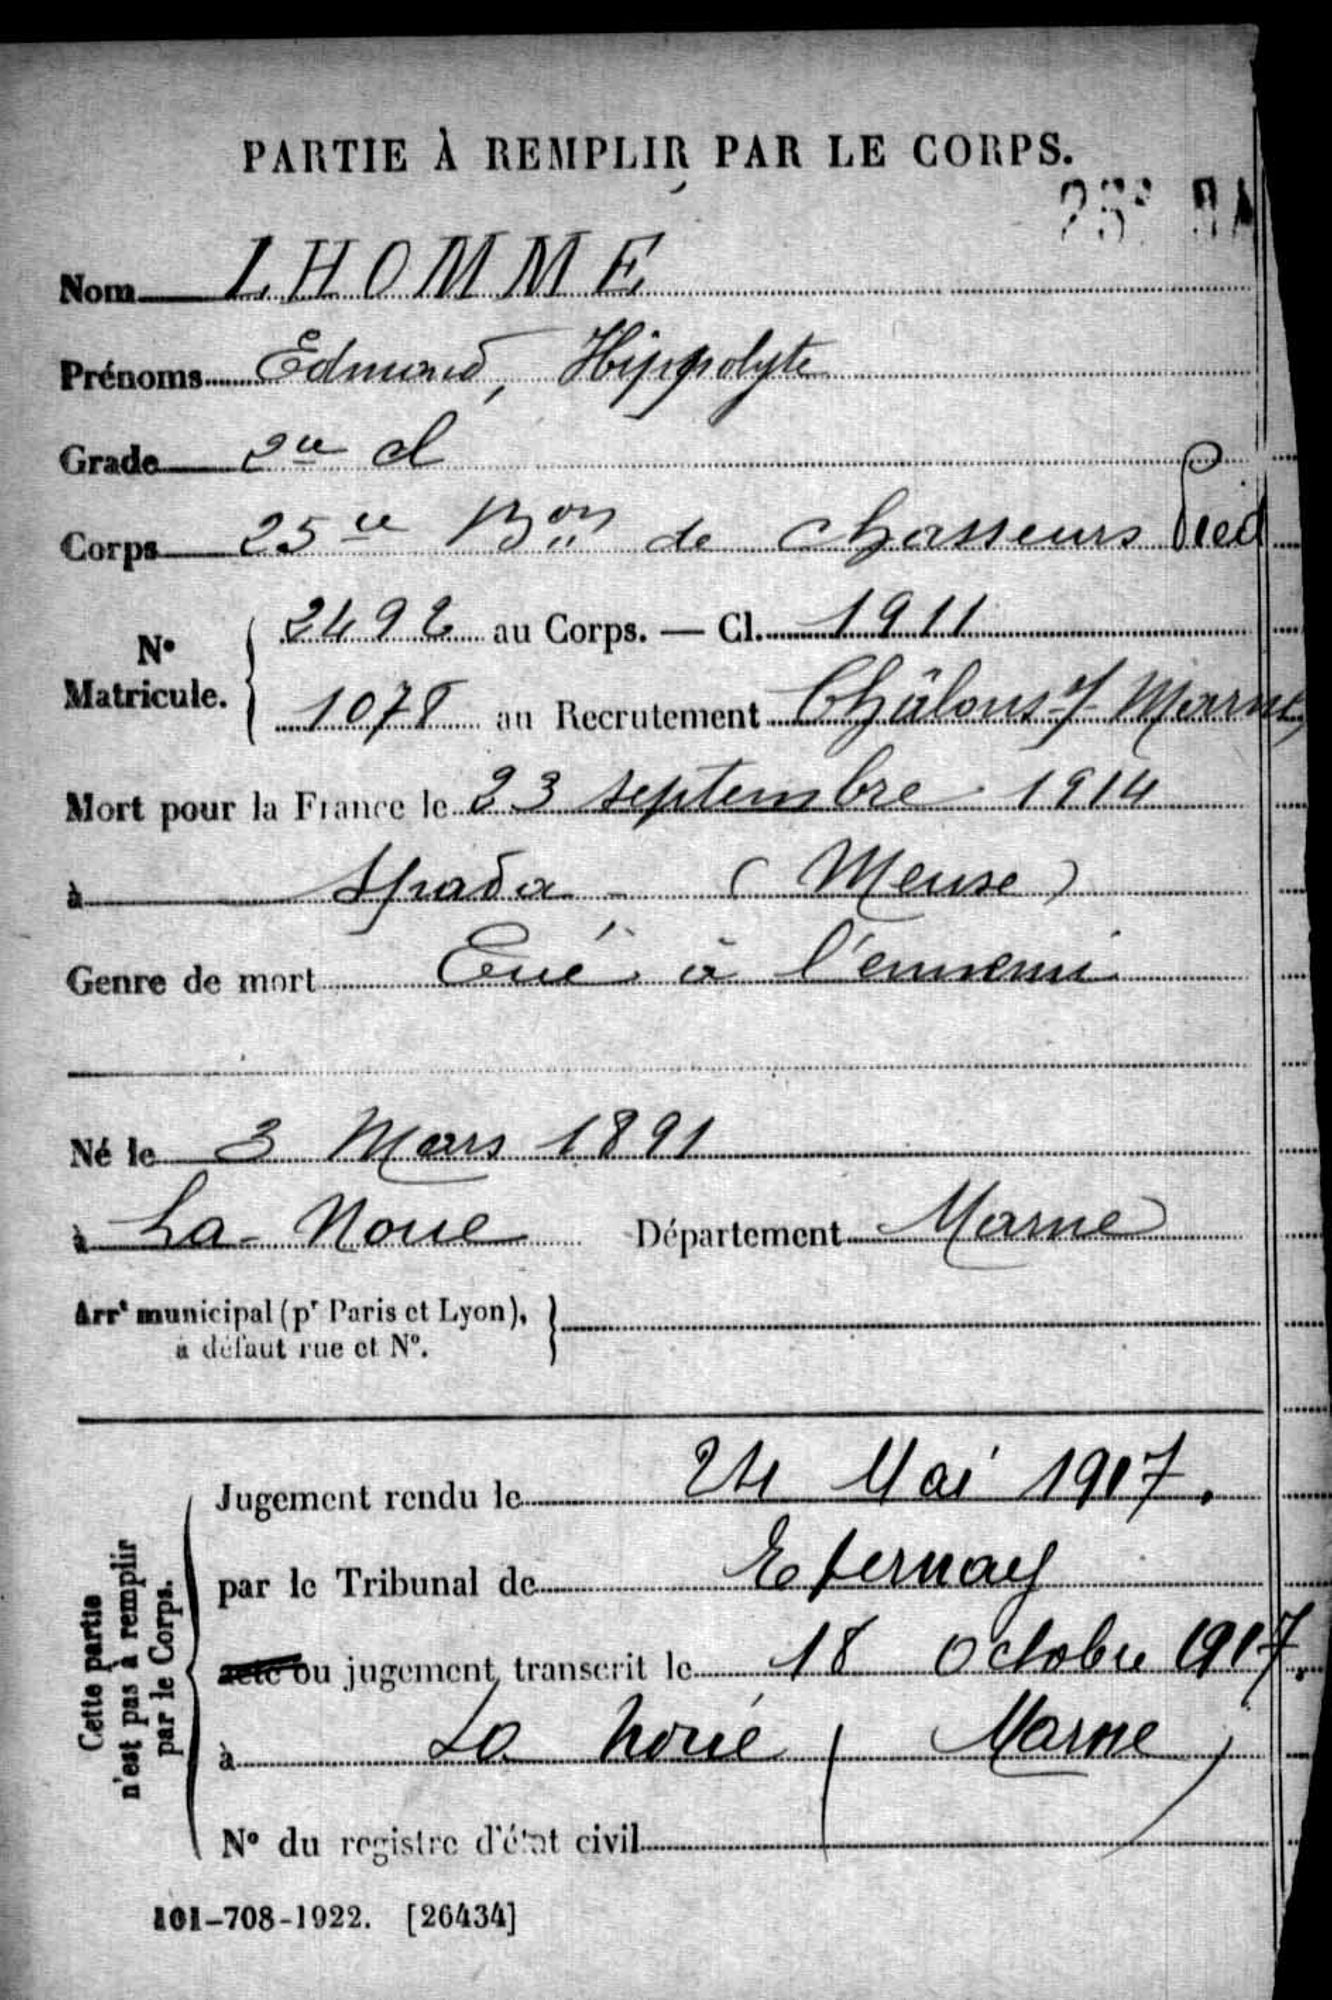 PARTIE À REMPLIR PAR LE CORPS.
25e
Nom LHOMME
Prénoms Edmond, Hippolyte
Grade 2e cl
Corps 25e Bon de chasseurs Pied
No Matricule. 2492 au Corps. — Cl. 1911
1078 au Recrutement Châlons s/ Marne
Mort pour la France le 23 septembre 1914
à Spada - (Meuse)
Genre de mort Tué à l'ennemi
Né le 3 Mars 1891
à La-Noue Département Marne
Arrt municipal (pr Paris et Lyon),
à défaut rue et No.
Cette partie
n'est pas à remplir
par le Corps.
Jugement rendu le 24 Mai 1917.
par le Tribunal de Epernay
acte ou jugement transcrit le 18 octobre 1917.
à La Noue (Marne)
No du registre d'état civil
101-708-1922. [26434]